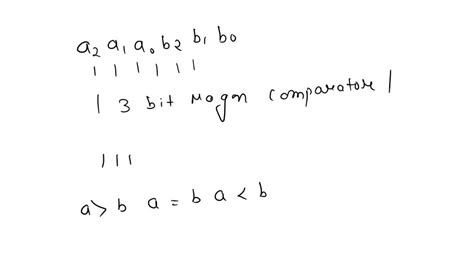 a2 a1 a0 b2 b1 b0
| | | | | |
| 3 bit magn comparatore |
| | |
a > b a = b a < b